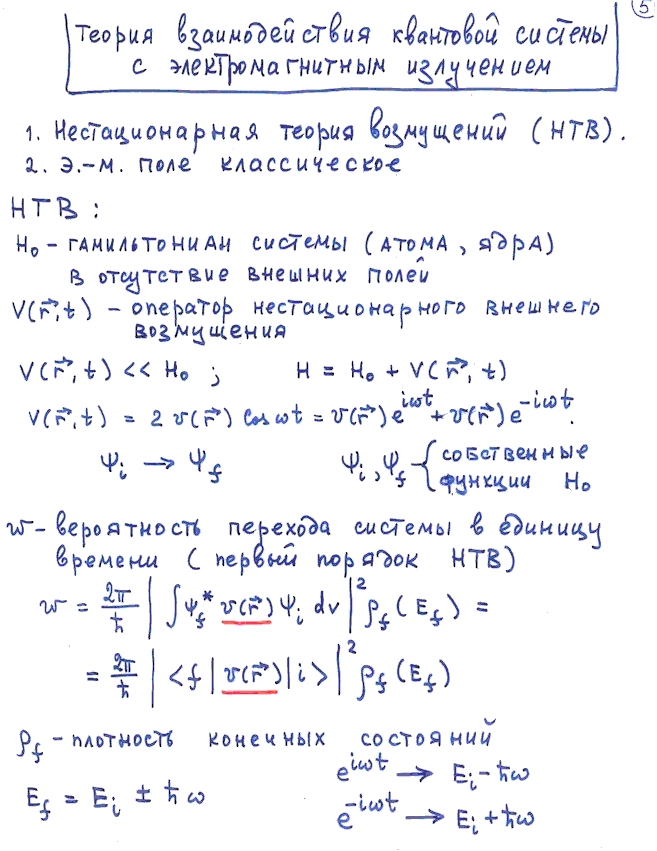 5
Теория взаимодействия квантовой системы
с электромагнитным излучением
1. Нестационарная теория возмущений (НТВ).
2. Э.-м. поле классическое
НТВ:
H₀ – гамильтониан системы (атома, ядра)
в отсутствие внешних полей
V(r⃗,t) – оператор нестационарного внешнего
возмущения
V(r⃗,t) << H₀ ; H = H₀ + V(r⃗,t)
V(r⃗,t) = 2 v(r⃗) cos ωt = v(r⃗)e^{iωt} + v(r⃗)e^{-iωt}.
Ψᵢ → Ψ_f Ψᵢ, Ψ_f – { собственные
функции H₀
w – вероятность перехода системы в единицу
времени (первый порядок НТВ)
w = 2π/ħ | ∫ Ψ_f* v(r⃗) Ψᵢ dv |² ρ_f (E_f) =
= 2π/ħ | <f | v(r⃗) | i> |² ρ_f (E_f)
ρ_f – плотность конечных состояний
E_f = Eᵢ ± ħω
e^{iωt} → Eᵢ – ħω
e^{-iωt} → Eᵢ + ħω